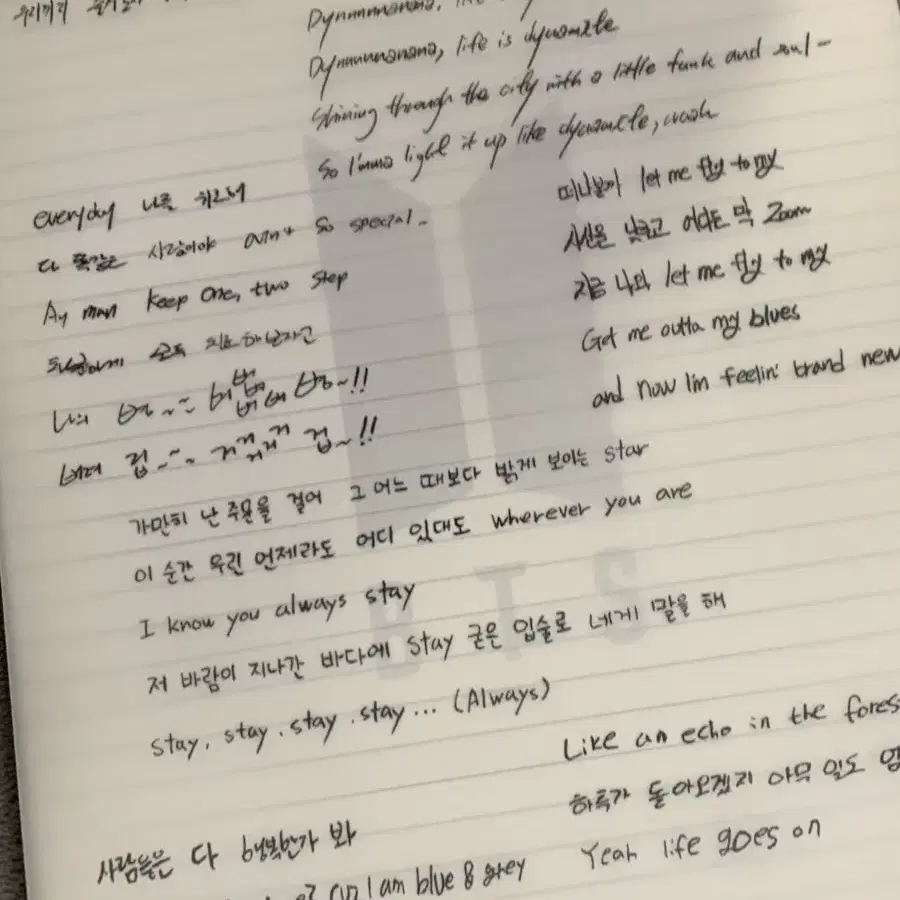 우리끼리
Dynnnnnanana,
Dynnnnnanana, life is dynamite
Shining through the city with a little funk and soul -
So I'mma light it up like dynamite, woah
everyday 나를 위로해
다 똑같은 사람이야 ain't so special
Ay man keep one, two step
떠나볼까 let me fly to my
시선을 낮추고 어디든 막 Zoom
지금 나와 let me fly to my
Got me outta my blues
and now I'm feelin' brand new
가만히 난 주문을 걸어 그 어느 때보다 밝게 보이는 star
이 순간 우린 언제라도 어디 있대도 wherever you are
I know you always stay
저 바람이 지나간 바다에 stay 굳은 입술로 네게 말을 해
stay, stay, stay, stay... (Always)
BTS
사람들은 다 행복한가 봐
I am blue & grey
Like an echo in the fores
하루가 돌아오겠지 아무 일도 없
Yeah life goes on